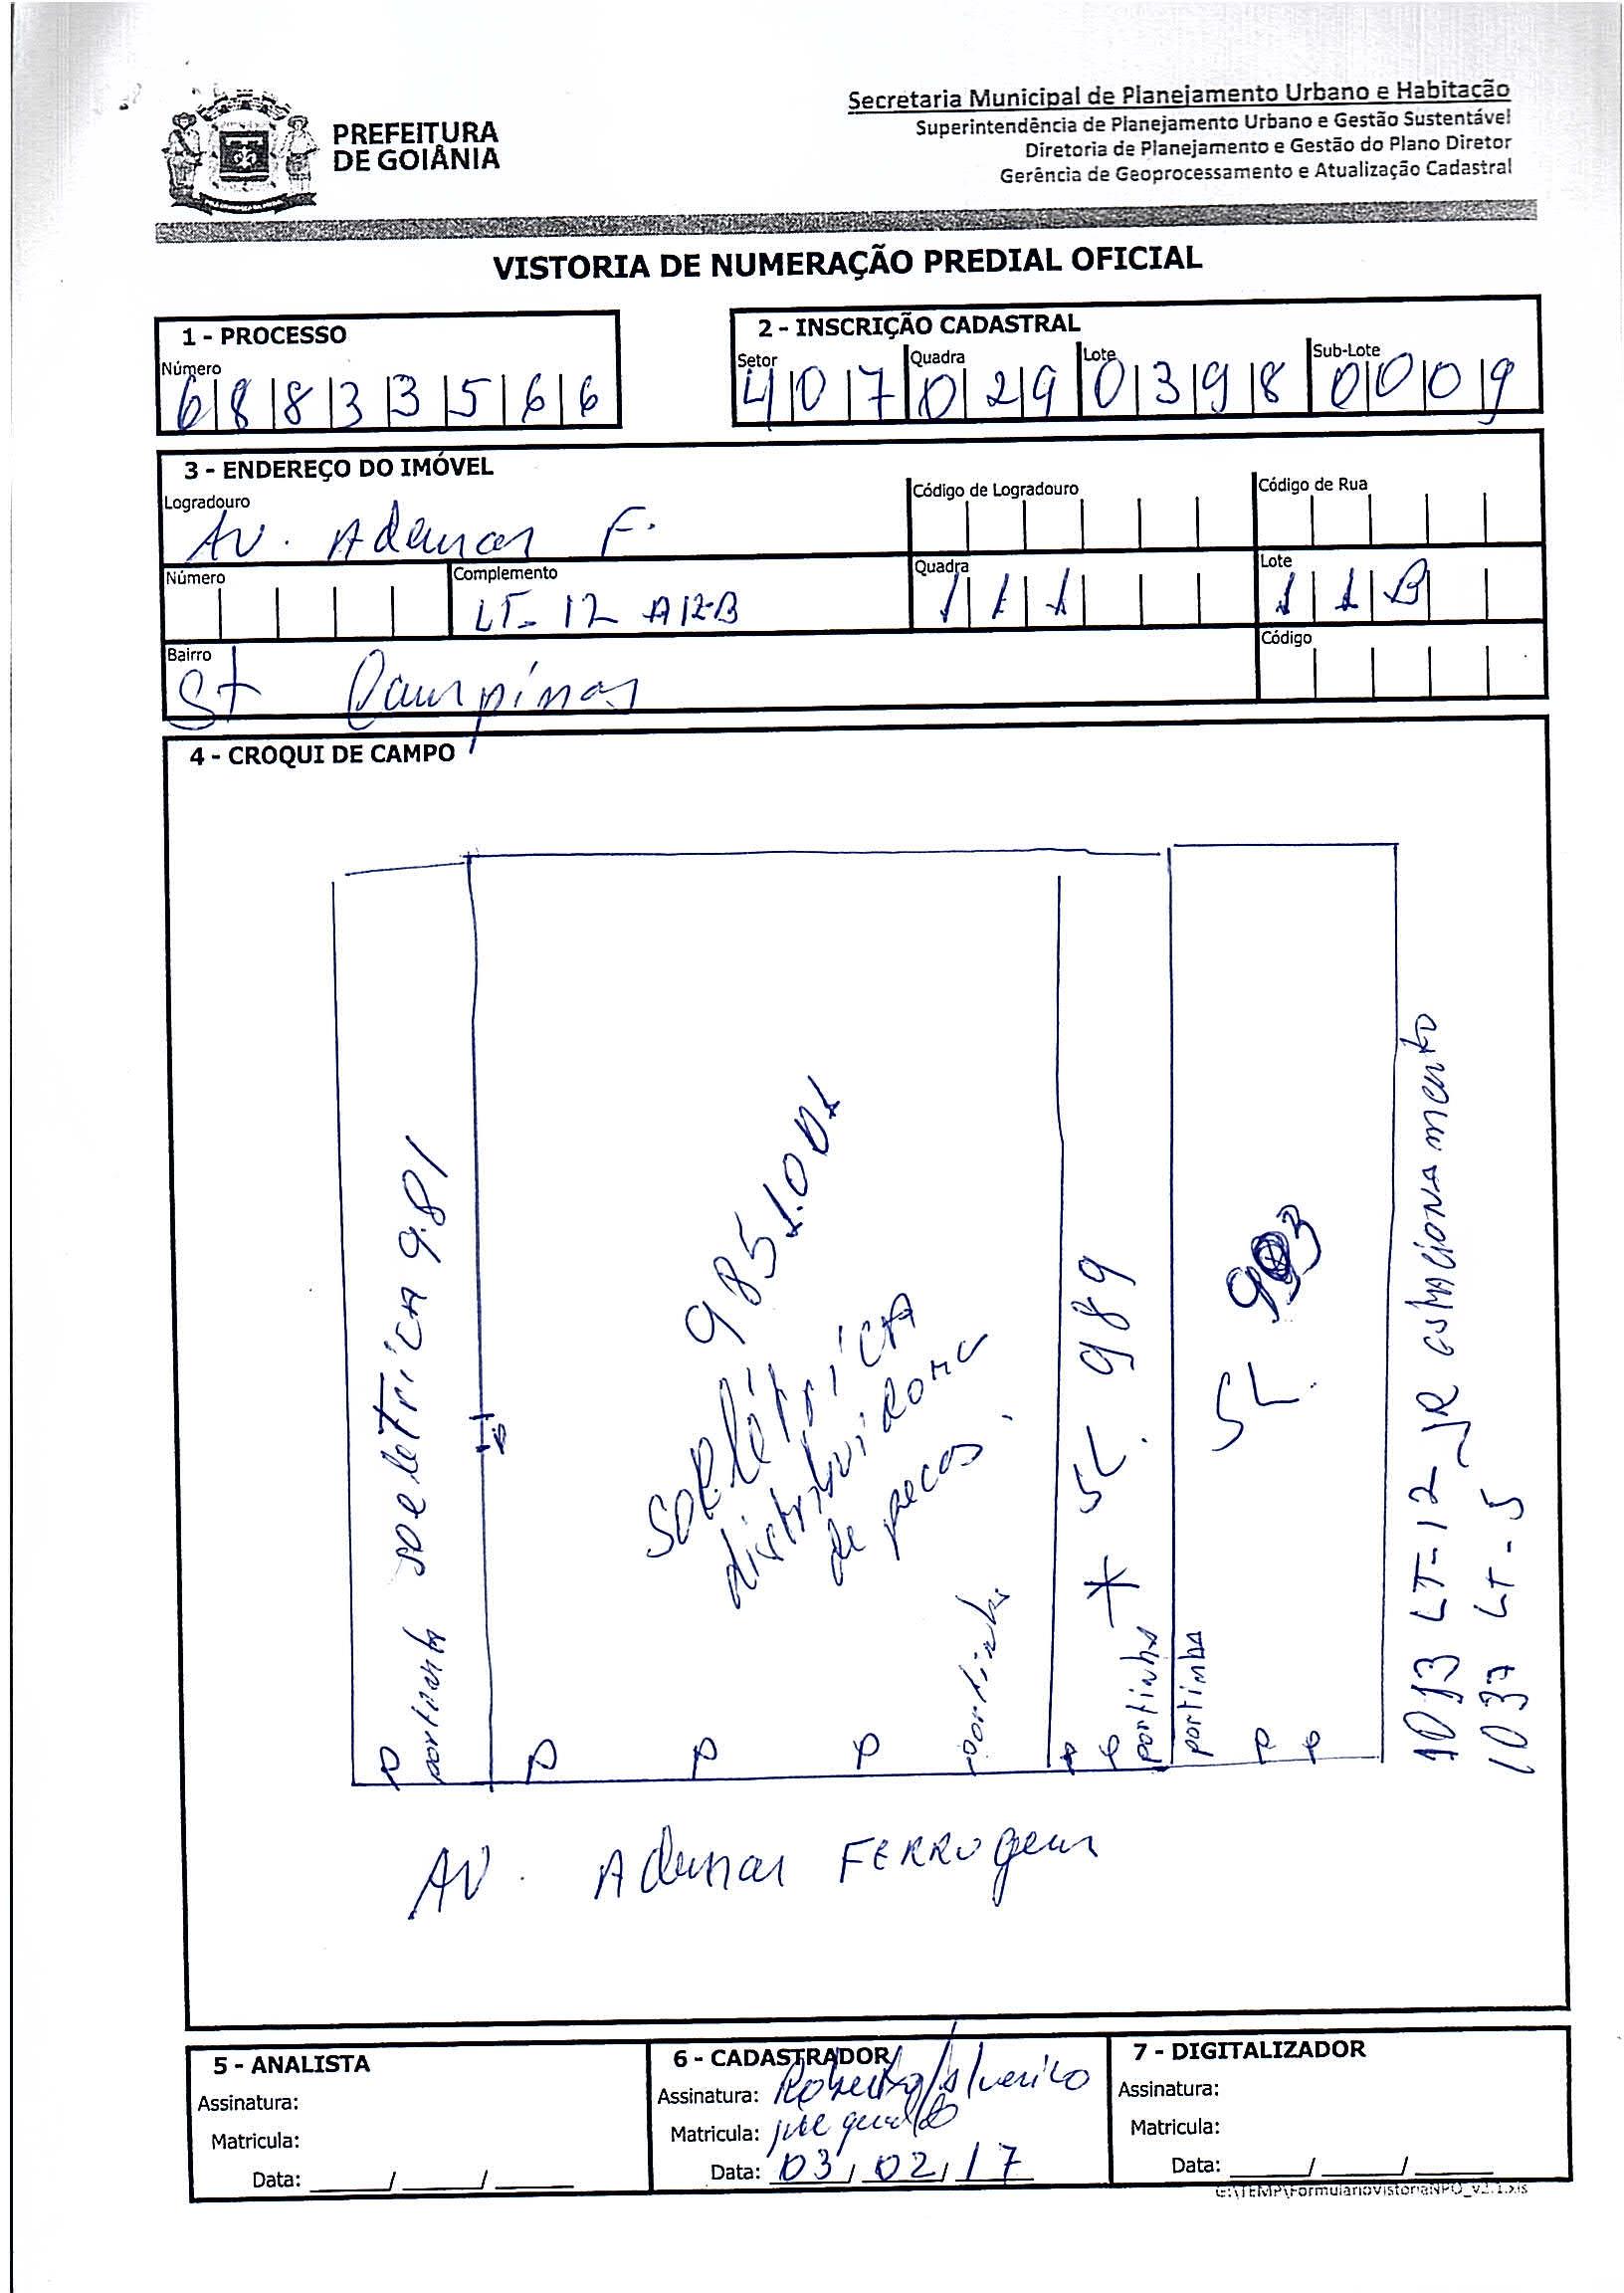 PREFEITURA
DE GOIÂNIA
Secretaria Municipal de Planejamento Urbano e Habitação
Superintendência de Planejamento Urbano e Gestão Sustentável
Diretoria de Planejamento e Gestão do Plano Diretor
Gerência de Geoprocessamento e Atualização Cadastral
VISTORIA DE NUMERAÇÃO PREDIAL OFICIAL
1 - PROCESSO
Número
68833566
2 - INSCRIÇÃO CADASTRAL
Setor Quadra Lote Sub-Lote
407 029 0398 0009
3 - ENDEREÇO DO IMÓVEL
Logradouro Código de Logradouro Código de Rua
AV. Ademar F.
Número Complemento Quadra Lote
LT- 12 A12-B 111 11B
Bairro Código
St Campinas
4 - CROQUI DE CAMPO
P portinha soeletrica 981
P
985 1.001
soelétrica
distribuidora
de peças.
P P P portinha
* SL. 989
P P portinha
SL. 993
portinha P P
1013 LT-12 JR estacionamento
1037 LT-5
AV. Ademar FERRugem
5 - ANALISTA
Assinatura:
Matricula:
Data: / /
6 - CADASTRADOR
Assinatura: Roberto
Matricula:
Data: 03/02/17
7 - DIGITALIZADOR
Assinatura:
Matricula:
Data: / /
G:\TEMP\FormularioVistoriaNPO_v2.1.xls